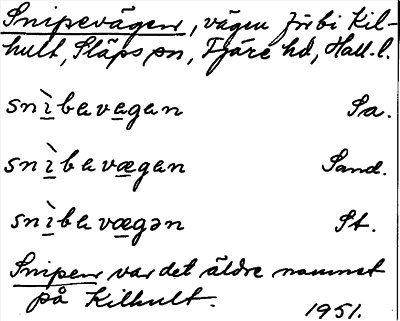 Snipevägen, vägen förbi Kil-
hult, Släps sn, Fjäre hd, Hall. l.
snì̱beva̱gen Sa.
snì̱bevæ̱gen Sand.
snì̱bevæ̱gən St.
Snipen var det äldre namnet
på Kilhult.
1951.